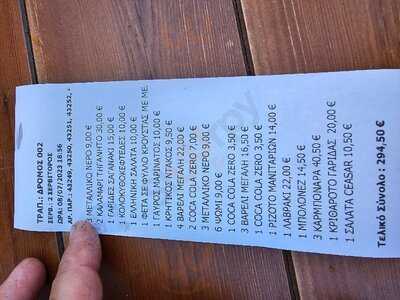 ΤΡΑΠ.: ΔΡΟΜΟΣ 002
ΣΕΡΒ.: 2 ΣΕΡΒΙΤΟΡΟΣ
ΩΡΑ: 08/07/2023 18:56
ΑΡ. ΠΑΡ.: 43249, 43250, 43251, 43252,
3 ΜΕΤΑΛΛΙΚΟ ΝΕΡΟ 9,00 €
2 ΚΑΛΑΜΑΡΙ ΤΗΓΑΝΗΤΟ 30,00 €
1 ΓΑΡΙΔΕΣ ΣΑΓΑΝΑΚΙ 15,00 €
1 ΚΟΛΟΚΥΘΟΚΕΦΤΕΔΕΣ 10,00 €
1 ΕΛΛΗΝΙΚΗ ΣΑΛΑΤΑ 10,00 €
1 ΦΕΤΑ ΣΕ ΦΥΛΛΟ ΚΡΟΥΣΤΑΣ ΜΕ ΜΕ.
1 ΓΑΥΡΟΣ ΜΑΡΙΝΑΤΟΣ 10,00 €
1 ΚΡΗΤΙΚΟΣ ΝΤΑΚΟΣ 9,50 €
4 ΒΑΡΕΛΙ ΜΕΓΑΛΗ 22,00 €
2 COCA COLA ZERO 7,00 €
3 ΜΕΤΑΛΛΙΚΟ ΝΕΡΟ 9,00 €
6 ΨΩΜΙ 9,00 €
1 COCA COLA ZERO 3,50 €
3 ΒΑΡΕΛΙ ΜΕΓΑΛΗ 16,50 €
1 COCA COLA ZERO 3,50 €
1 COCA COLA ZERO 3,50 €
1 ΡΙΖΟΤΟ ΜΑΝΙΤΑΡΙΩΝ 14,00 €
1 ΛΑΒΡΑΚΙ 22,00 €
1 ΜΠΟΛΟΝΕΖ 14,50 €
3 ΚΑΡΜΠΟΝΑΡΑ 40,50 €
1 ΚΡΙΘΑΡΟΤΟ ΓΑΡΙΔΑΣ 20,00 €
1 ΣΑΛΑΤΑ CEASAR 10,50 €
Τελικό Σύνολο : 294,50 €